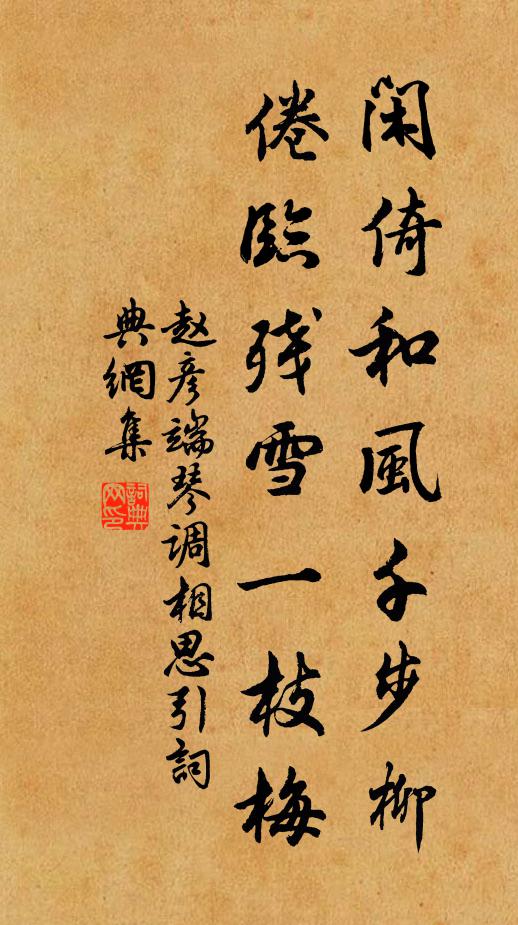 闲倚和風千步柳
倦臨残雪一枝梅
赵彦端琴调相思引詞
典網集
詞典网印